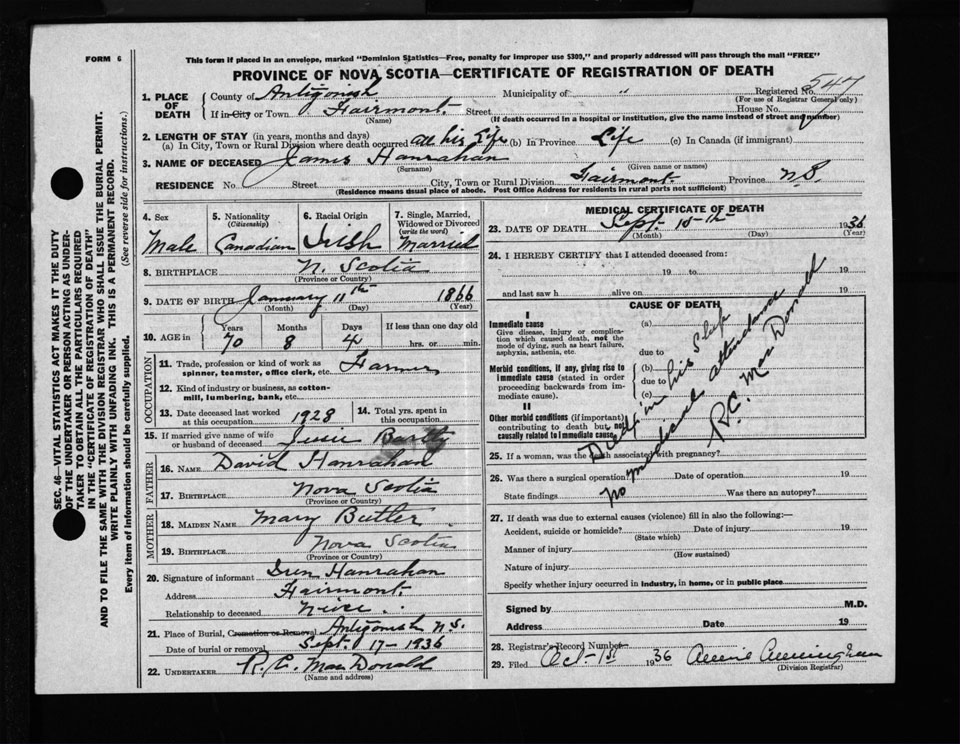 FORM 6
This form if placed in an envelope, marked "Dominion Statistics—Free, penalty for improper use $300," and properly addressed will pass through the mail "FREE"
PROVINCE OF NOVA SCOTIA—CERTIFICATE OF REGISTRATION OF DEATH
547
1. PLACE OF DEATH County of Antigonish Municipality of " Registered No.
(For use of Registrar General only)
If in City or Town Fairmont. Street House No.
(Name) (If death occurred in a hospital or institution, give the name instead of street and number)
2. LENGTH OF STAY (in years, months and days)
(a) In City, Town or Rural Division where death occurred all his Life (b) In Province Life (c) In Canada (if immigrant)
3. NAME OF DECEASED James Hanrahan
(Surname) (Given name or names)
RESIDENCE No. Street City, Town or Rural Division Fairmont. Province N.S.
(Residence means usual place of abode. Post Office Address for residents in rural parts not sufficient)
SEC. 46—VITAL STATISTICS ACT MAKES IT THE DUTY
OF THE UNDERTAKER OR PERSON ACTING AS UNDER-
TAKER TO OBTAIN ALL THE PARTICULARS REQUIRED
IN THE "CERTIFICATE OF REGISTRATION OF DEATH"
AND TO FILE THE SAME WITH THE DIVISION REGISTRAR WHO SHALL ISSUE THE BURIAL PERMIT.
WRITE PLAINLY WITH UNFADING INK. THIS IS A PERMANENT RECORD.
Every item of information should be carefully supplied. (See reverse side for instructions.)
4. Sex 5. Nationality (Citizenship) 6. Racial Origin 7. Single, Married, Widowed or Divorced (write the word)
Male Canadian Irish Married
8. BIRTHPLACE N. Scotia
(Province or Country)
9. DATE OF BIRTH January 11th 1866
(Month) (Day) (Year)
10. AGE in Years Months Days If less than one day old
70 8 4 hrs. or min.
OCCUPATION
11. Trade, profession or kind of work as spinner, teamster, office clerk, etc. Farmer
12. Kind of industry or business, as cotton-mill, lumbering, bank, etc.
13. Date deceased last worked at this occupation 1928 14. Total yrs. spent in this occupation
15. If married give name of wife or husband of deceased Jessie
FATHER
16. NAME David Hanrahan
17. BIRTHPLACE Nova Scotia
(Province or Country)
MOTHER
18. MAIDEN NAME Mary Butler
19. BIRTHPLACE Nova Scotia
(Province or Country)
20. Signature of informant Hanrahan
Address Fairmont.
Relationship to deceased Niece
21. Place of Burial, Cremation or Removal Antigonish N.S.
Date of burial or removal Sept. 17-1936
22. UNDERTAKER R.C. MacDonald
(Name and address)
MEDICAL CERTIFICATE OF DEATH
23. DATE OF DEATH Sept. 15th 1936
(Month) (Day) (Year)
24. I HEREBY CERTIFY that I attended deceased from:
19 to 19
and last saw h alive on 19
CAUSE OF DEATH
I
Immediate cause (a)
Give disease, injury or complication which caused death, not the mode of dying, such as heart failure, asphyxia, asthenia, etc.
due to
Morbid conditions, if any, giving rise to immediate cause (stated in order proceeding backwards from immediate cause). (b)
due to
(c)
II
Other morbid conditions (if important) contributing to death but not causally related to immediate cause
Died in his Sleep
no medical attendance
R.C. MacDonald
25. If a woman, was the death associated with pregnancy?
26. Was there a surgical operation? Date of operation 19
State findings Was there an autopsy?
27. If death was due to external causes (violence) fill in also the following:—
Accident, suicide or homicide? Date of injury 19
(State which)
Manner of injury
(How sustained)
Nature of injury
Specify whether injury occurred in industry, in home, or in public place
Signed by M.D.
Address Date 19
28. Registrar's Record Number
29. Filed Oct-1st 1936
(Division Registrar)